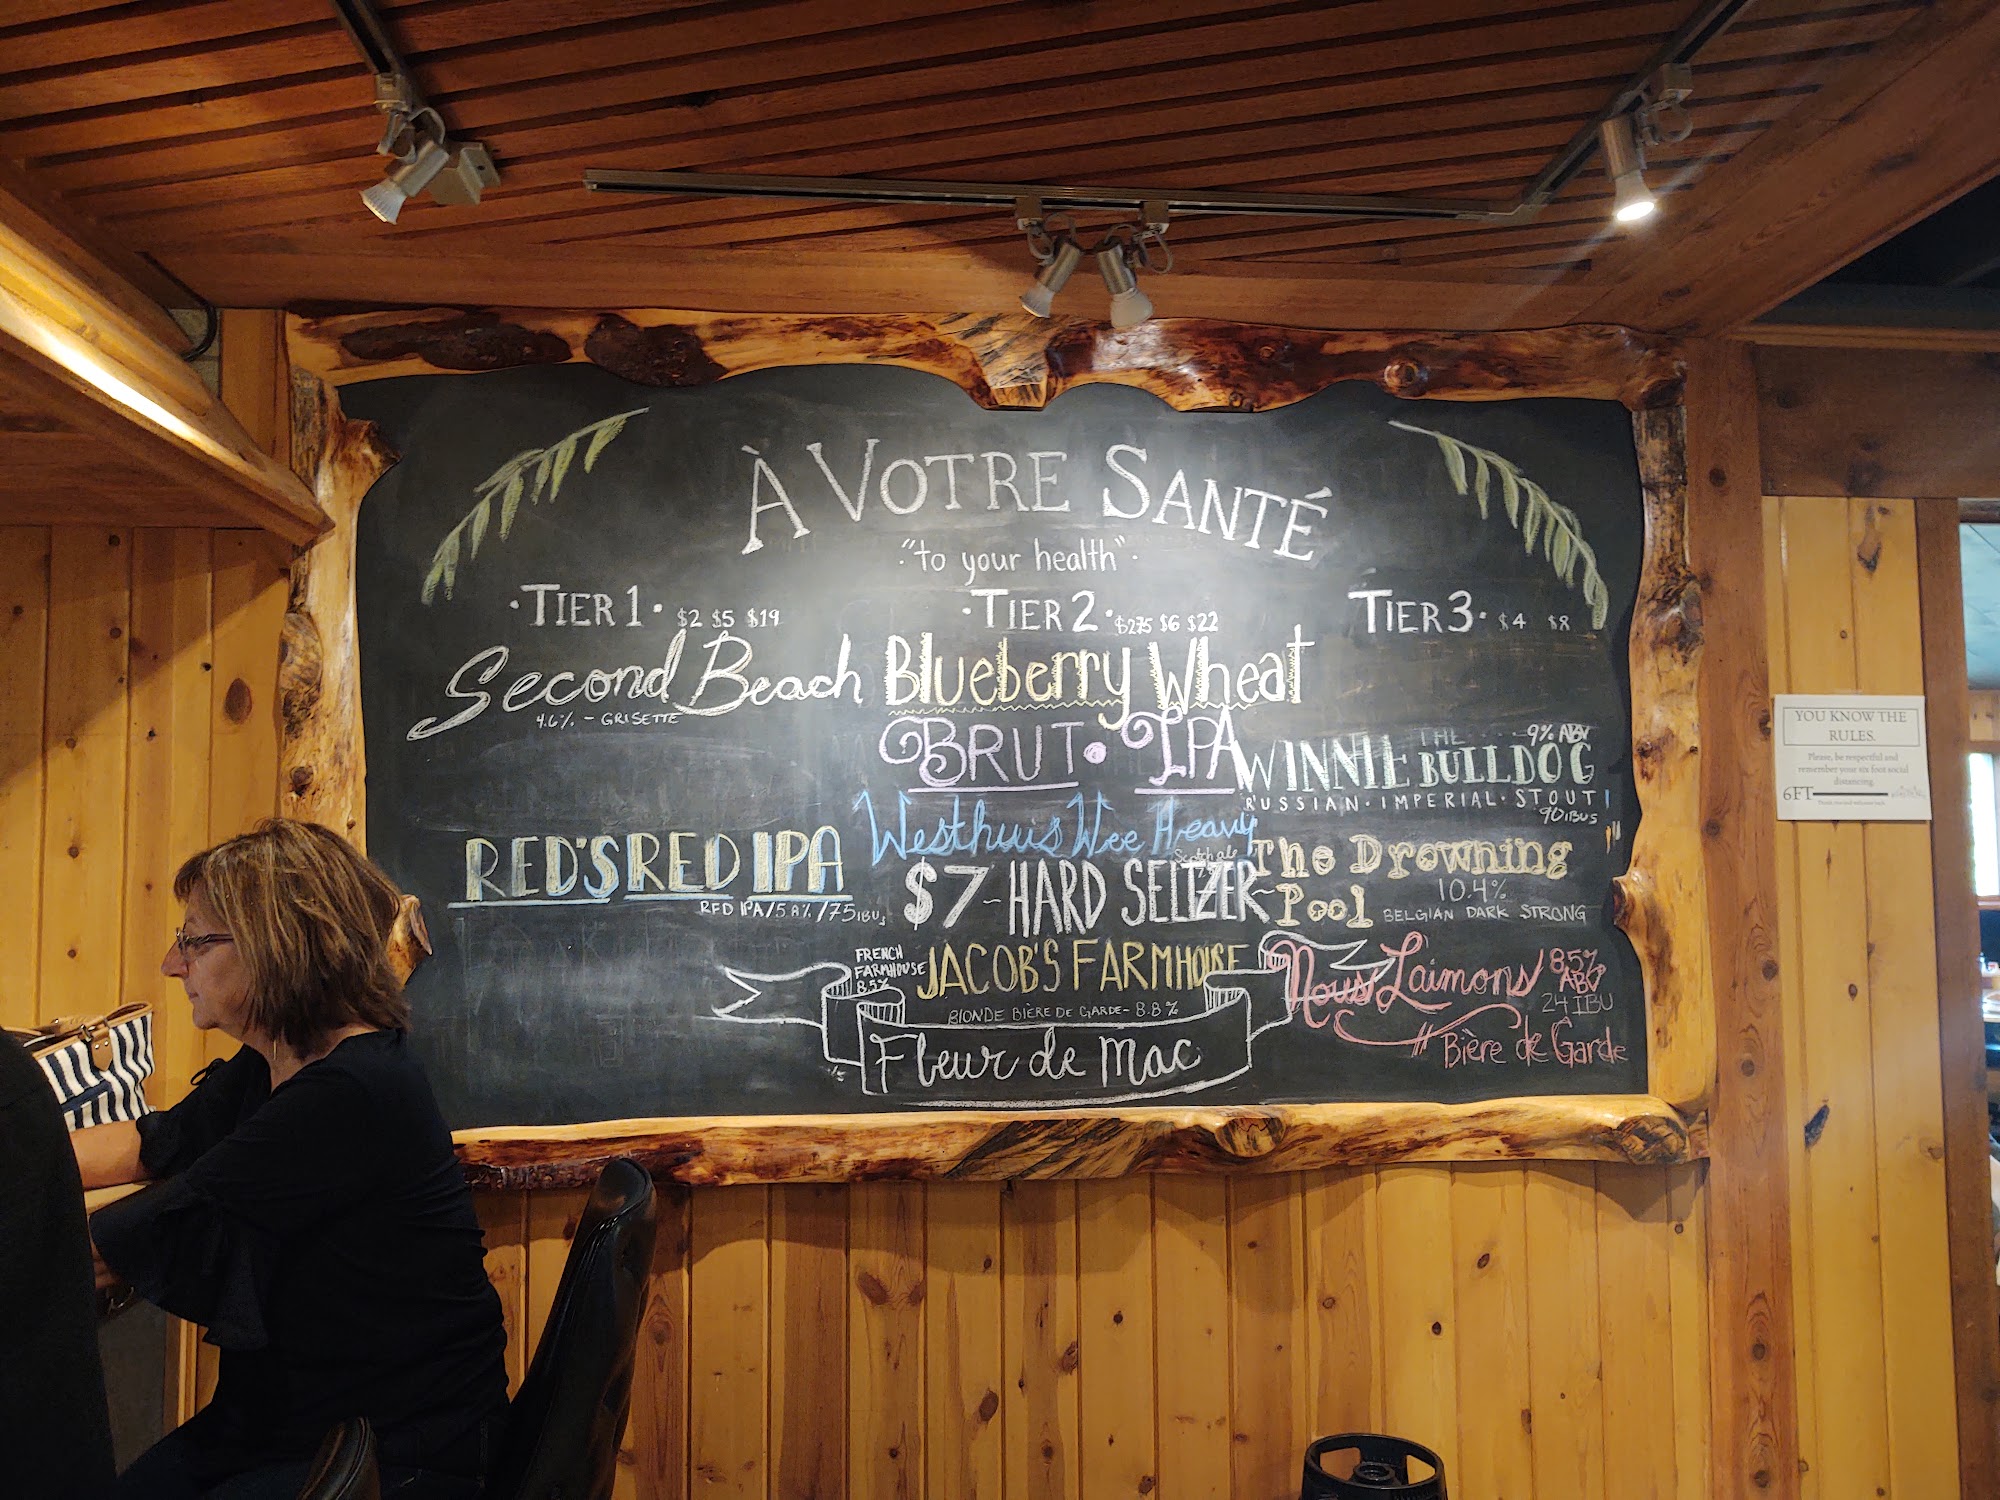 À VOTRE SANTÉ
"to your health"
• TIER 1 • $2 $5 $19
Second Beach
4.6% - GRISETTE
RED'S RED IPA
RED IPA/5.8%/75 IBUs
• TIER 2 • $2.75 $6 $22
Blueberry Wheat
BRUT • IPA
Westhuis Wee Heavy
Scotch ale
$7 - HARD SELTZER
JACOB'S FARMHOUSE
BLONDE BIÈRE DE GARDE - 8.8%
FRENCH
FARMHOUSE
8.5%
Fleur de Mac
TIER 3 • $4 $8
THE 9% ABV
WINNIE BULLDOG
RUSSIAN • IMPERIAL • STOUT
90 IBUs
The Drowning
Pool 10.4%
BELGIAN DARK STRONG
Nous L'aimons 8.5%
ABV
24 IBU
Bière de Garde
YOU KNOW THE
RULES.
Please, be respectful and
remember your six foot social
distancing.
6FT